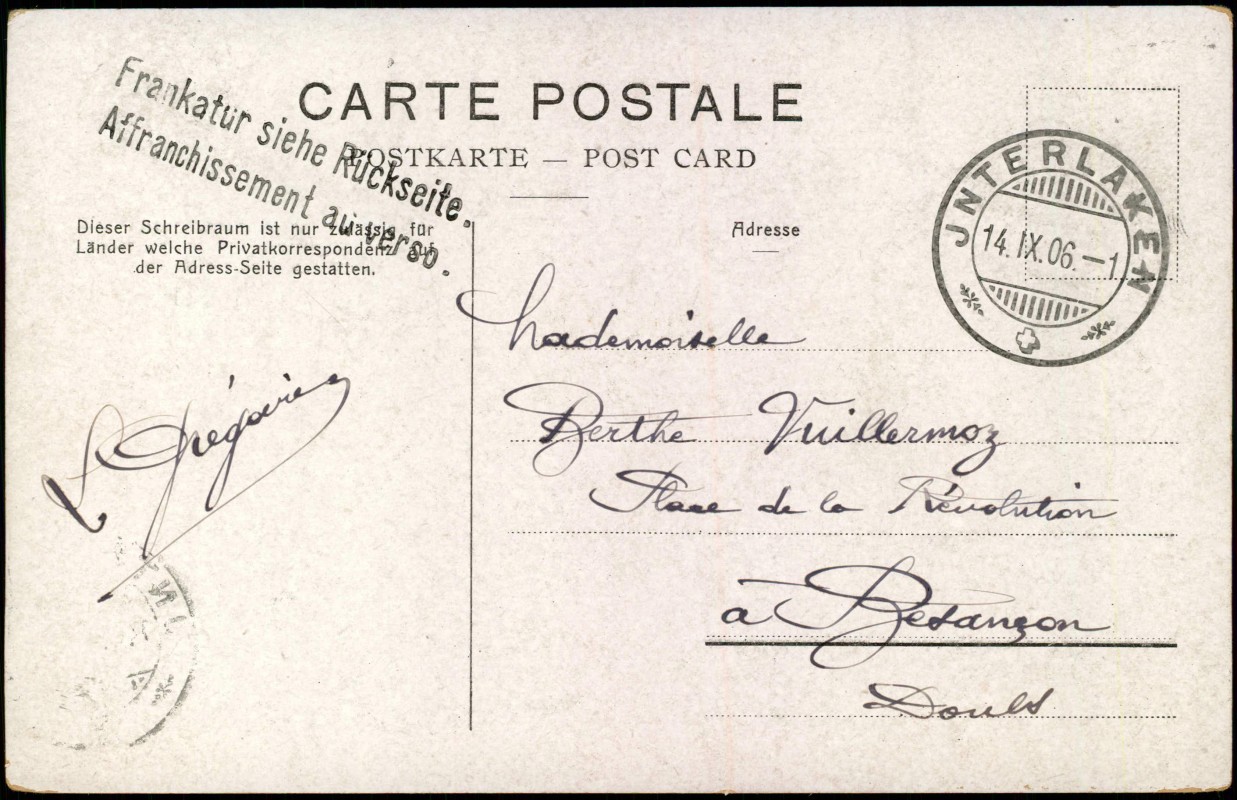 CARTE POSTALE
POSTKARTE — POST CARD
Frankatur siehe Rückseite.
Affranchissement au verso.
Dieser Schreibraum ist nur zulässig für
Länder welche Privatkorrespondenz auf
der Adress-Seite gestatten.
Adresse
JNTERLAKEN
14.IX.06.—1
Mademoiselle
Berthe Vuillermoz
Place de la Révolution
à Besançon
Doubs
L Grégoire